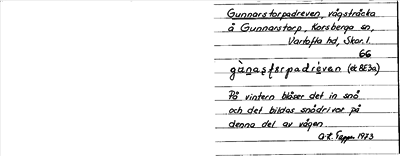 Gunnarstorpadreven, vägsträcka
å Gunnarstorp, Korsberga sn,
Vartofta hd, Skar. l.
66
(ek 8E3a)
På vintern blåser det in snö
och det bildas snödrivor på
denna del av vägen.
1973